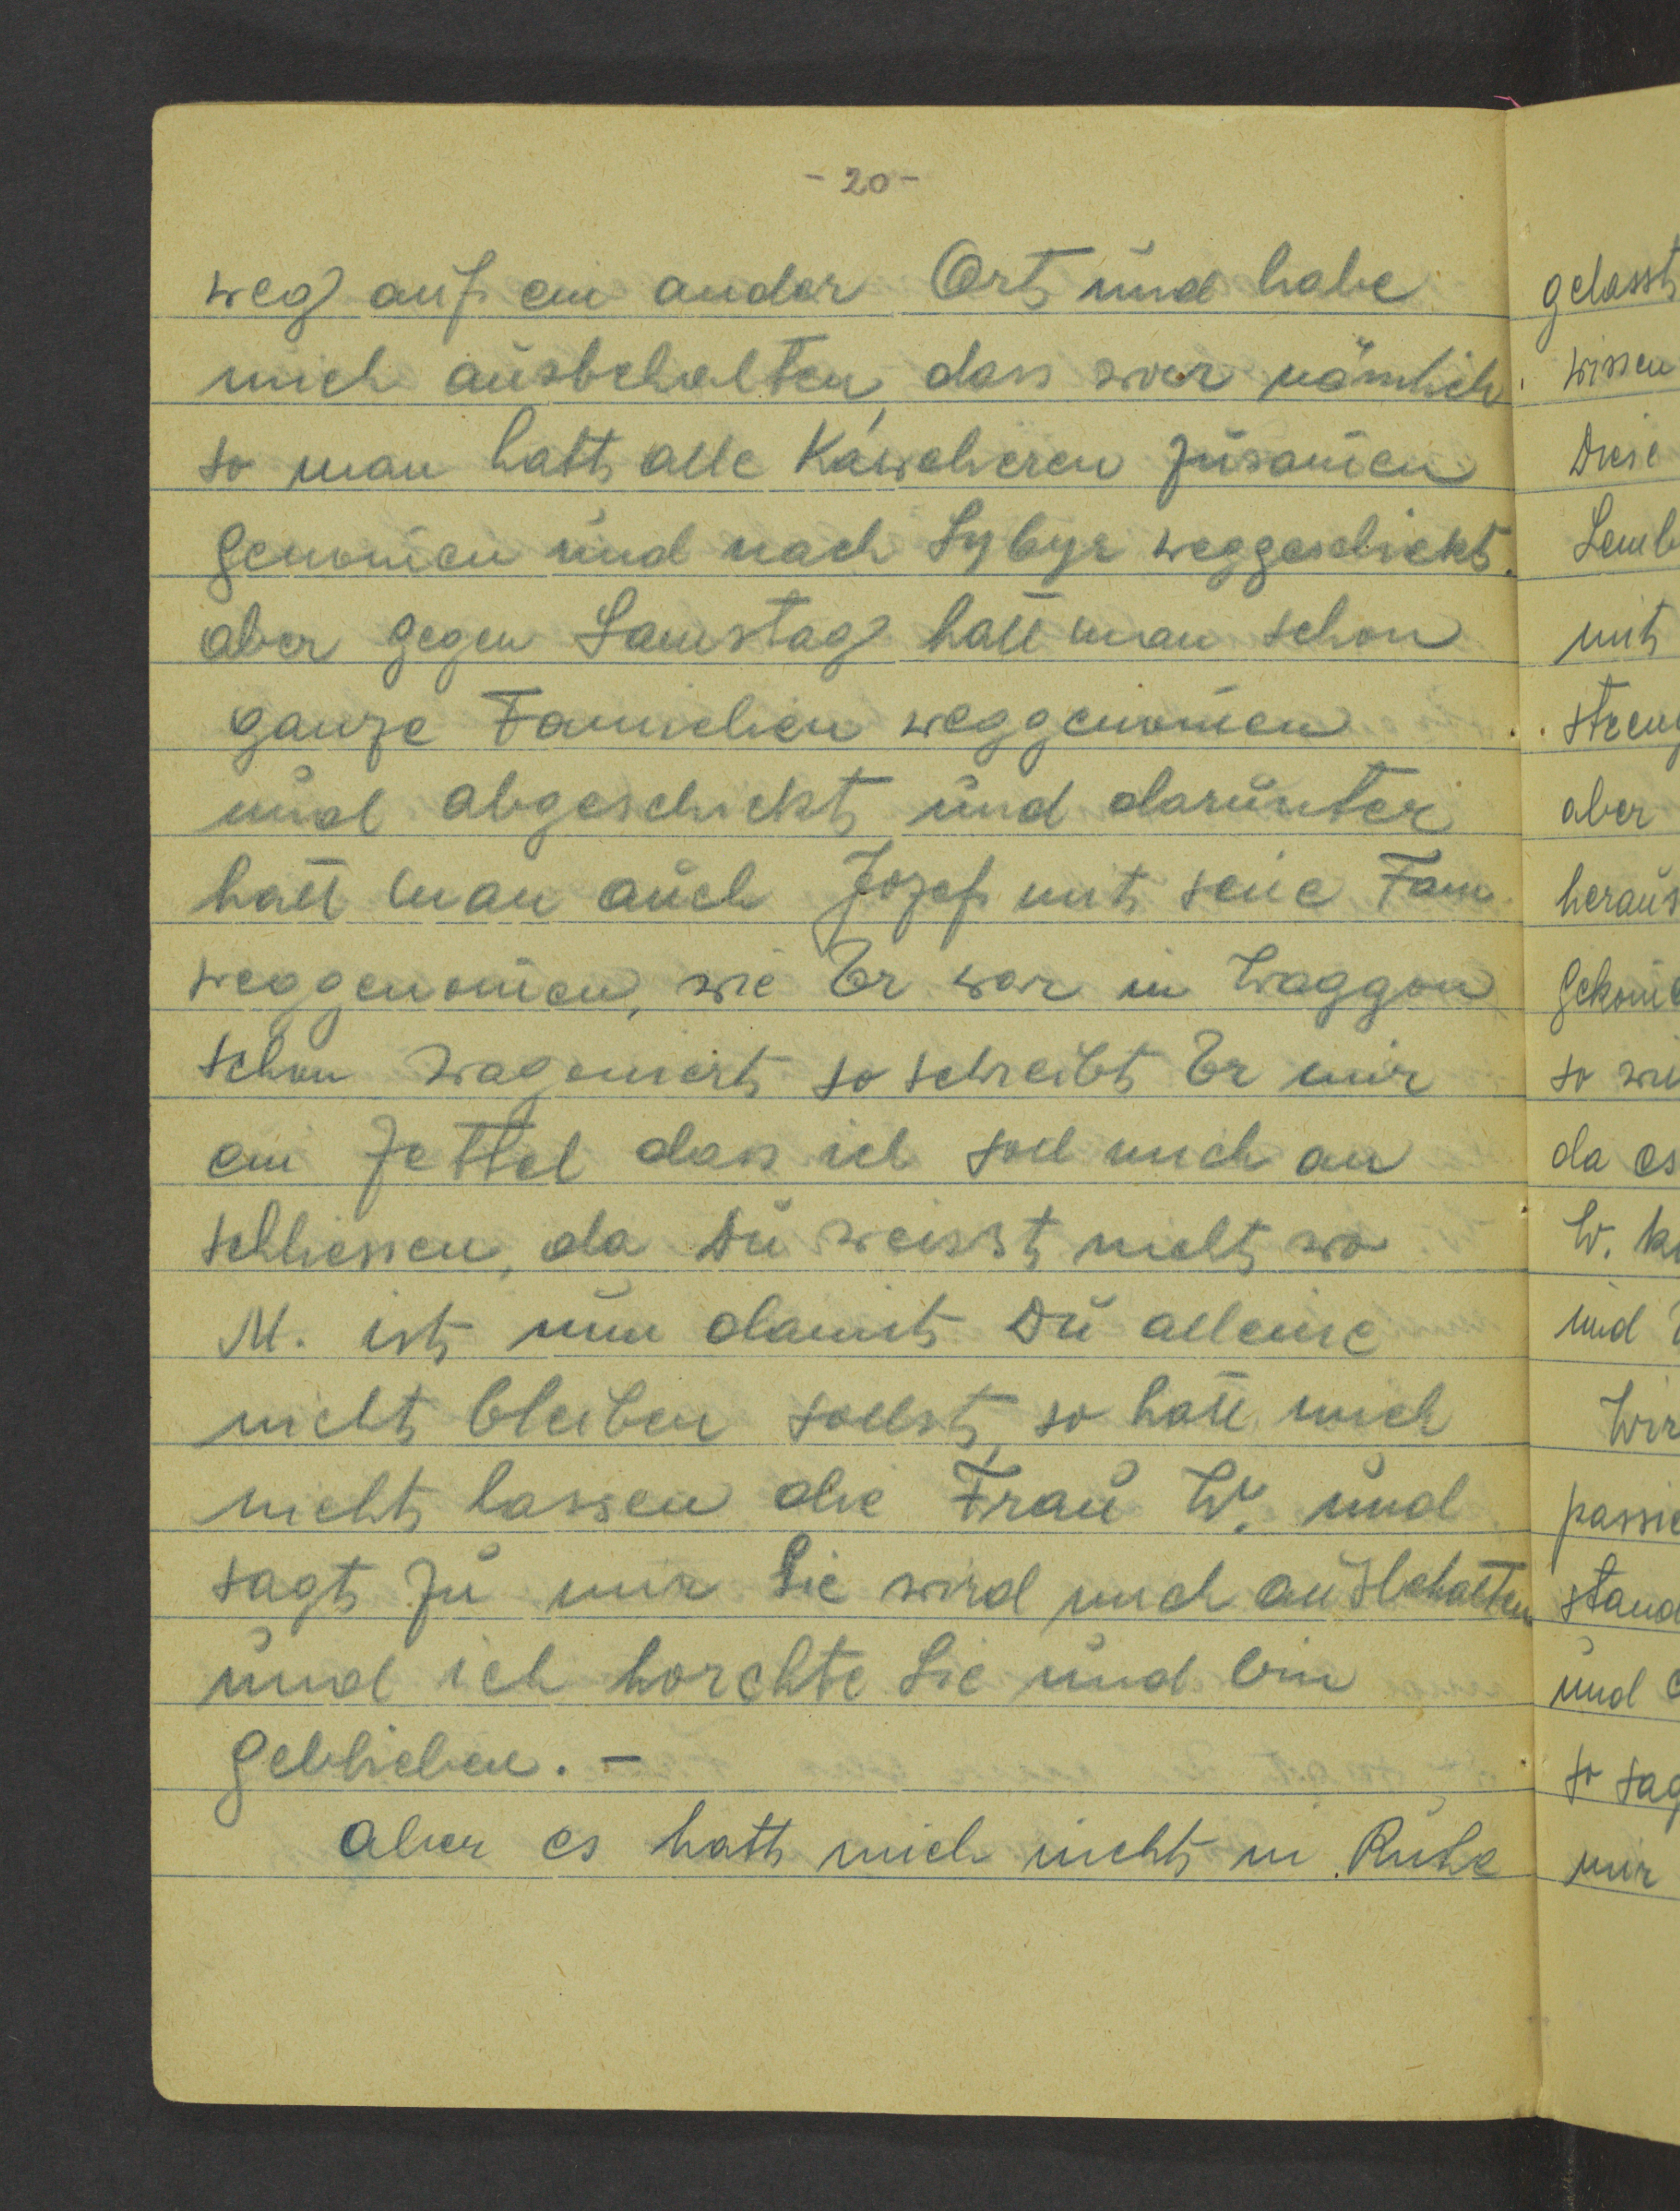 - 20 -
weg auf ein ander Ort und habe
mich ausbehalten, das war nämlich
so man hatt alle Kawalieren zusam̄en
genom̄en und nach Sybyr weggeschickt.
aber gegen Samstag hatt man schon
ganze Familien weggenom̄en
und abgeschickt und darunter
hatt man auch Jozef mit seine Fam.
weggenom̄en, wie Er war in Waggon
schon wagoniert so schreibt Er mir
ein Zettel dass ich soll mich an
schliessen, da Du weisst nicht wo
M. ist nun damit Du alleine
nicht bleiben sollst, so hatt mich
nicht lassen die Frau W. und
sagt zu mir Sie wird mich ausbehalten
und ich horchte Sie und bin
geblieben. -
Aber es hatt mich nicht in Ruhe
gelasst
wissen
Diese
Lemb
mit
streng
aber
heraus
gekom̄e
so wie
da es
W. k
und
Wir
passie
stand
und
so sag
mir